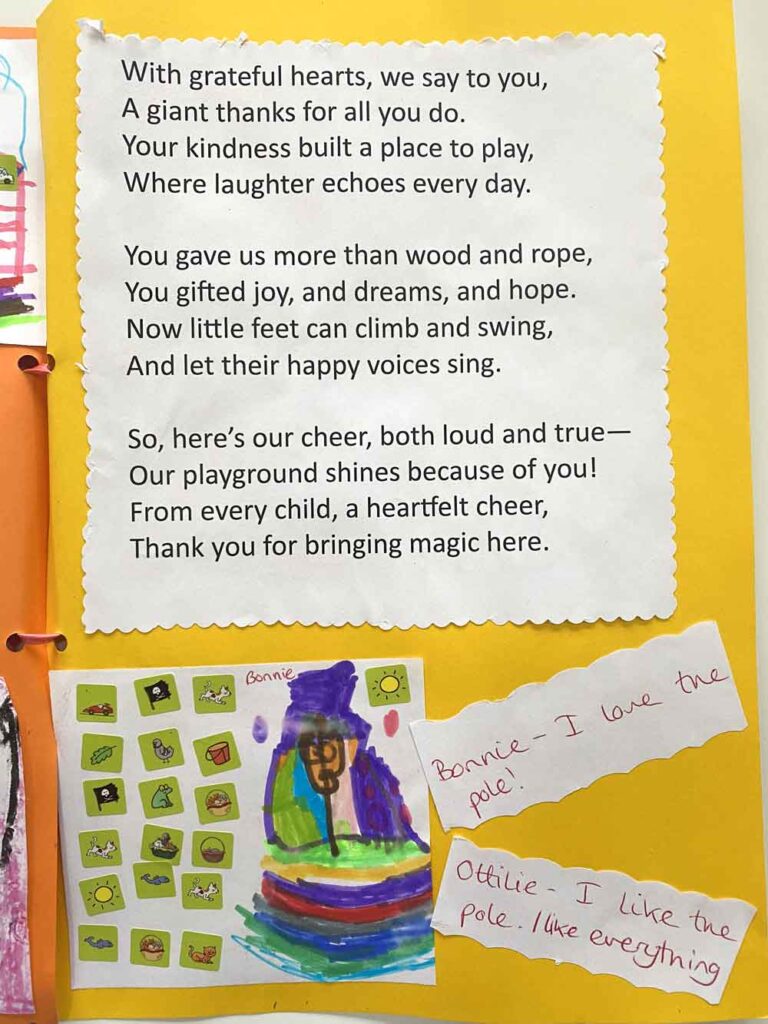 With grateful hearts, we say to you,
A giant thanks for all you do.
Your kindness built a place to play,
Where laughter echoes every day.
You gave us more than wood and rope,
You gifted joy, and dreams, and hope.
Now little feet can climb and swing,
And let their happy voices sing.
So, here's our cheer, both loud and true—
Our playground shines because of you!
From every child, a heartfelt cheer,
Thank you for bringing magic here.
Bonnie
Bonnie - I love the
pole!
Ottilie - I like the
pole. I like everything